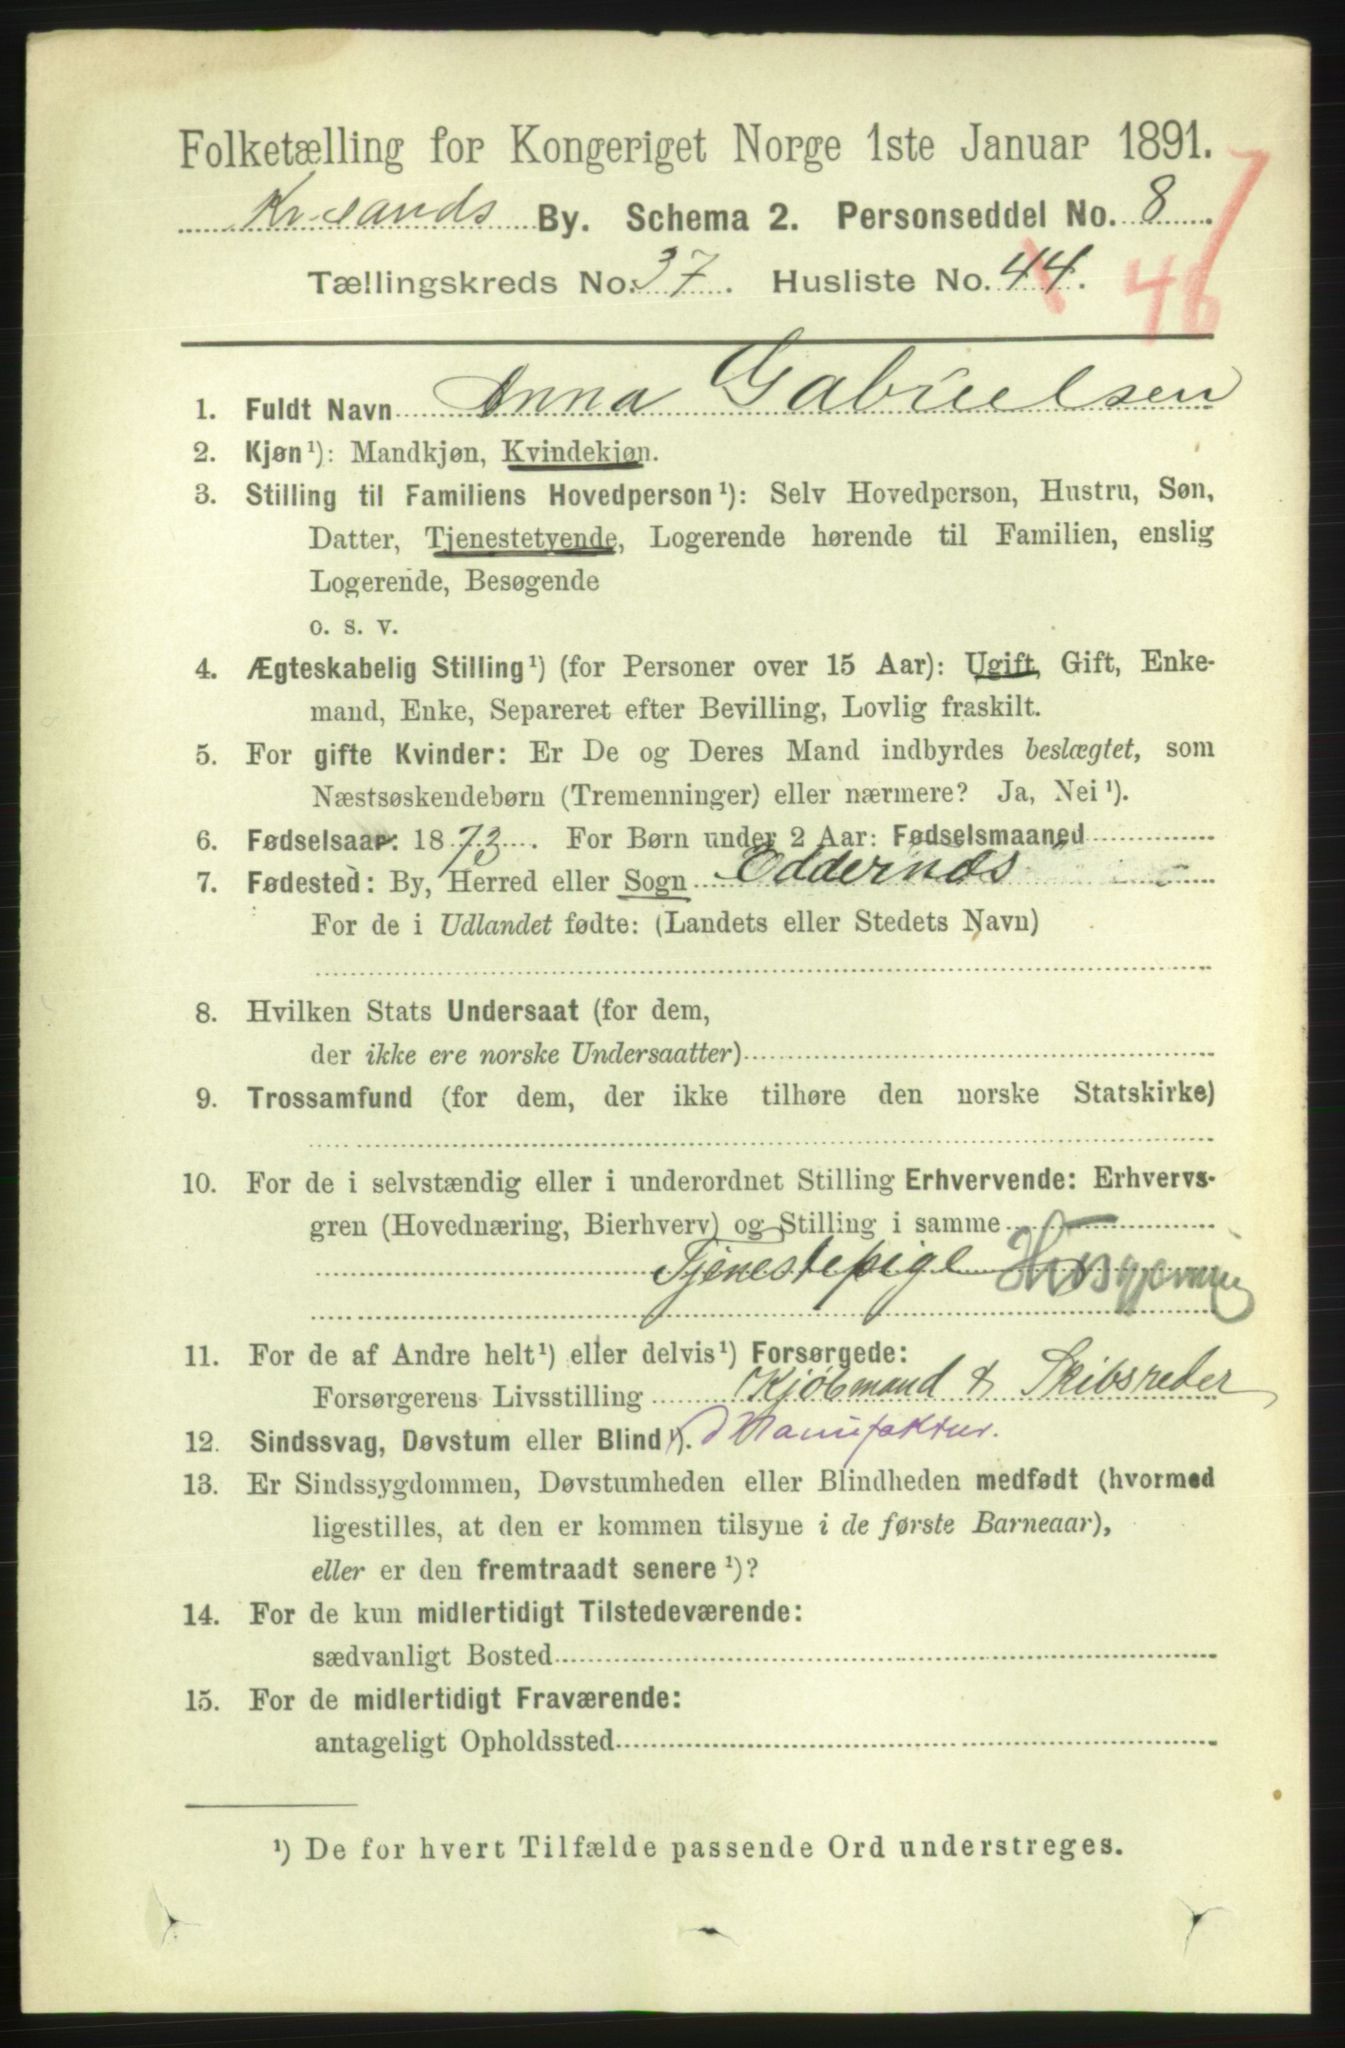 Folketælling for Kongeriget Norge 1ste Januar 1891.
Kr.sands By. Schema 2. Personseddel No. 8
Tællingskreds No. 37. Husliste No. 44.
46
1. Fuldt Navn Anna Gabrielsen
2. Kjøn¹): Mandkjøn, Kvindekjøn.
3. Stilling til Familiens Hovedperson¹): Selv Hovedperson, Hustru, Søn,
Datter, Tjenestetyende, Logerende hørende til Familien, enslig
Logerende, Besøgende
o. s. v.
4. Ægteskabelig Stilling¹) (for Personer over 15 Aar): Ugift, Gift, Enke-
mand, Enke, Separeret efter Bevilling, Lovlig fraskilt.
5. For gifte Kvinder: Er De og Deres Mand indbyrdes beslægtet, som
Næstsøskendebørn (Tremenninger) eller nærmere? Ja, Nei¹).
6. Fødselsaar: 1873. For Børn under 2 Aar: Fødselsmaaned
7. Fødested: By, Herred eller Sogn Oddernæs
For de i Udlandet fødte: (Landets eller Stedets Navn)
8. Hvilken Stats Undersaat (for dem,
der ikke ere norske Undersaatter)
9. Trossamfund (for dem, der ikke tilhøre den norske Statskirke)
10. For de i selvstændig eller i underordnet Stilling Erhvervende: Erhvervs-
gren (Hovednæring, Bierhverv) og Stilling i samme
Tjenestepige Husgjerning
11. For de af Andre helt¹) eller delvis¹) Forsørgede:
Forsørgerens Livsstilling Kjøbmand & Skibsreder
12. Sindssvag, Døvstum eller Blind¹). Manufaktur.
13. Er Sindssygdommen, Døvstumheden eller Blindheden medfødt (hvormed
ligestilles, at den er kommen tilsyne i de første Barneaar),
eller er den fremtraadt senere¹)?
14. For de kun midlertidigt Tilstedeværende:
sædvanligt Bosted
15. For de midlertidigt Fraværende:
antageligt Opholdssted
¹) De for hvert Tilfælde passende Ord understreges.